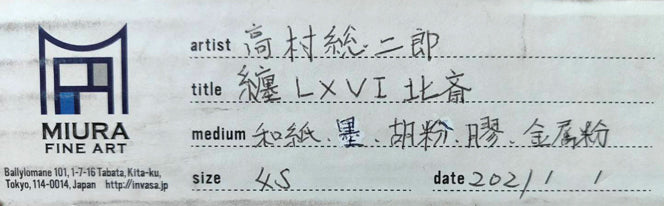 MIURA
FINE ART
Ballylomane 101, 1-7-16 Tabata, Kita-ku,
Tokyo, 114-0014, Japan http://invasa.jp
artist 高村総二郎
title 纏 LXVI 北斎
medium 和紙、墨、胡粉、膠、金属粉
size 4S
date 2021 1 1